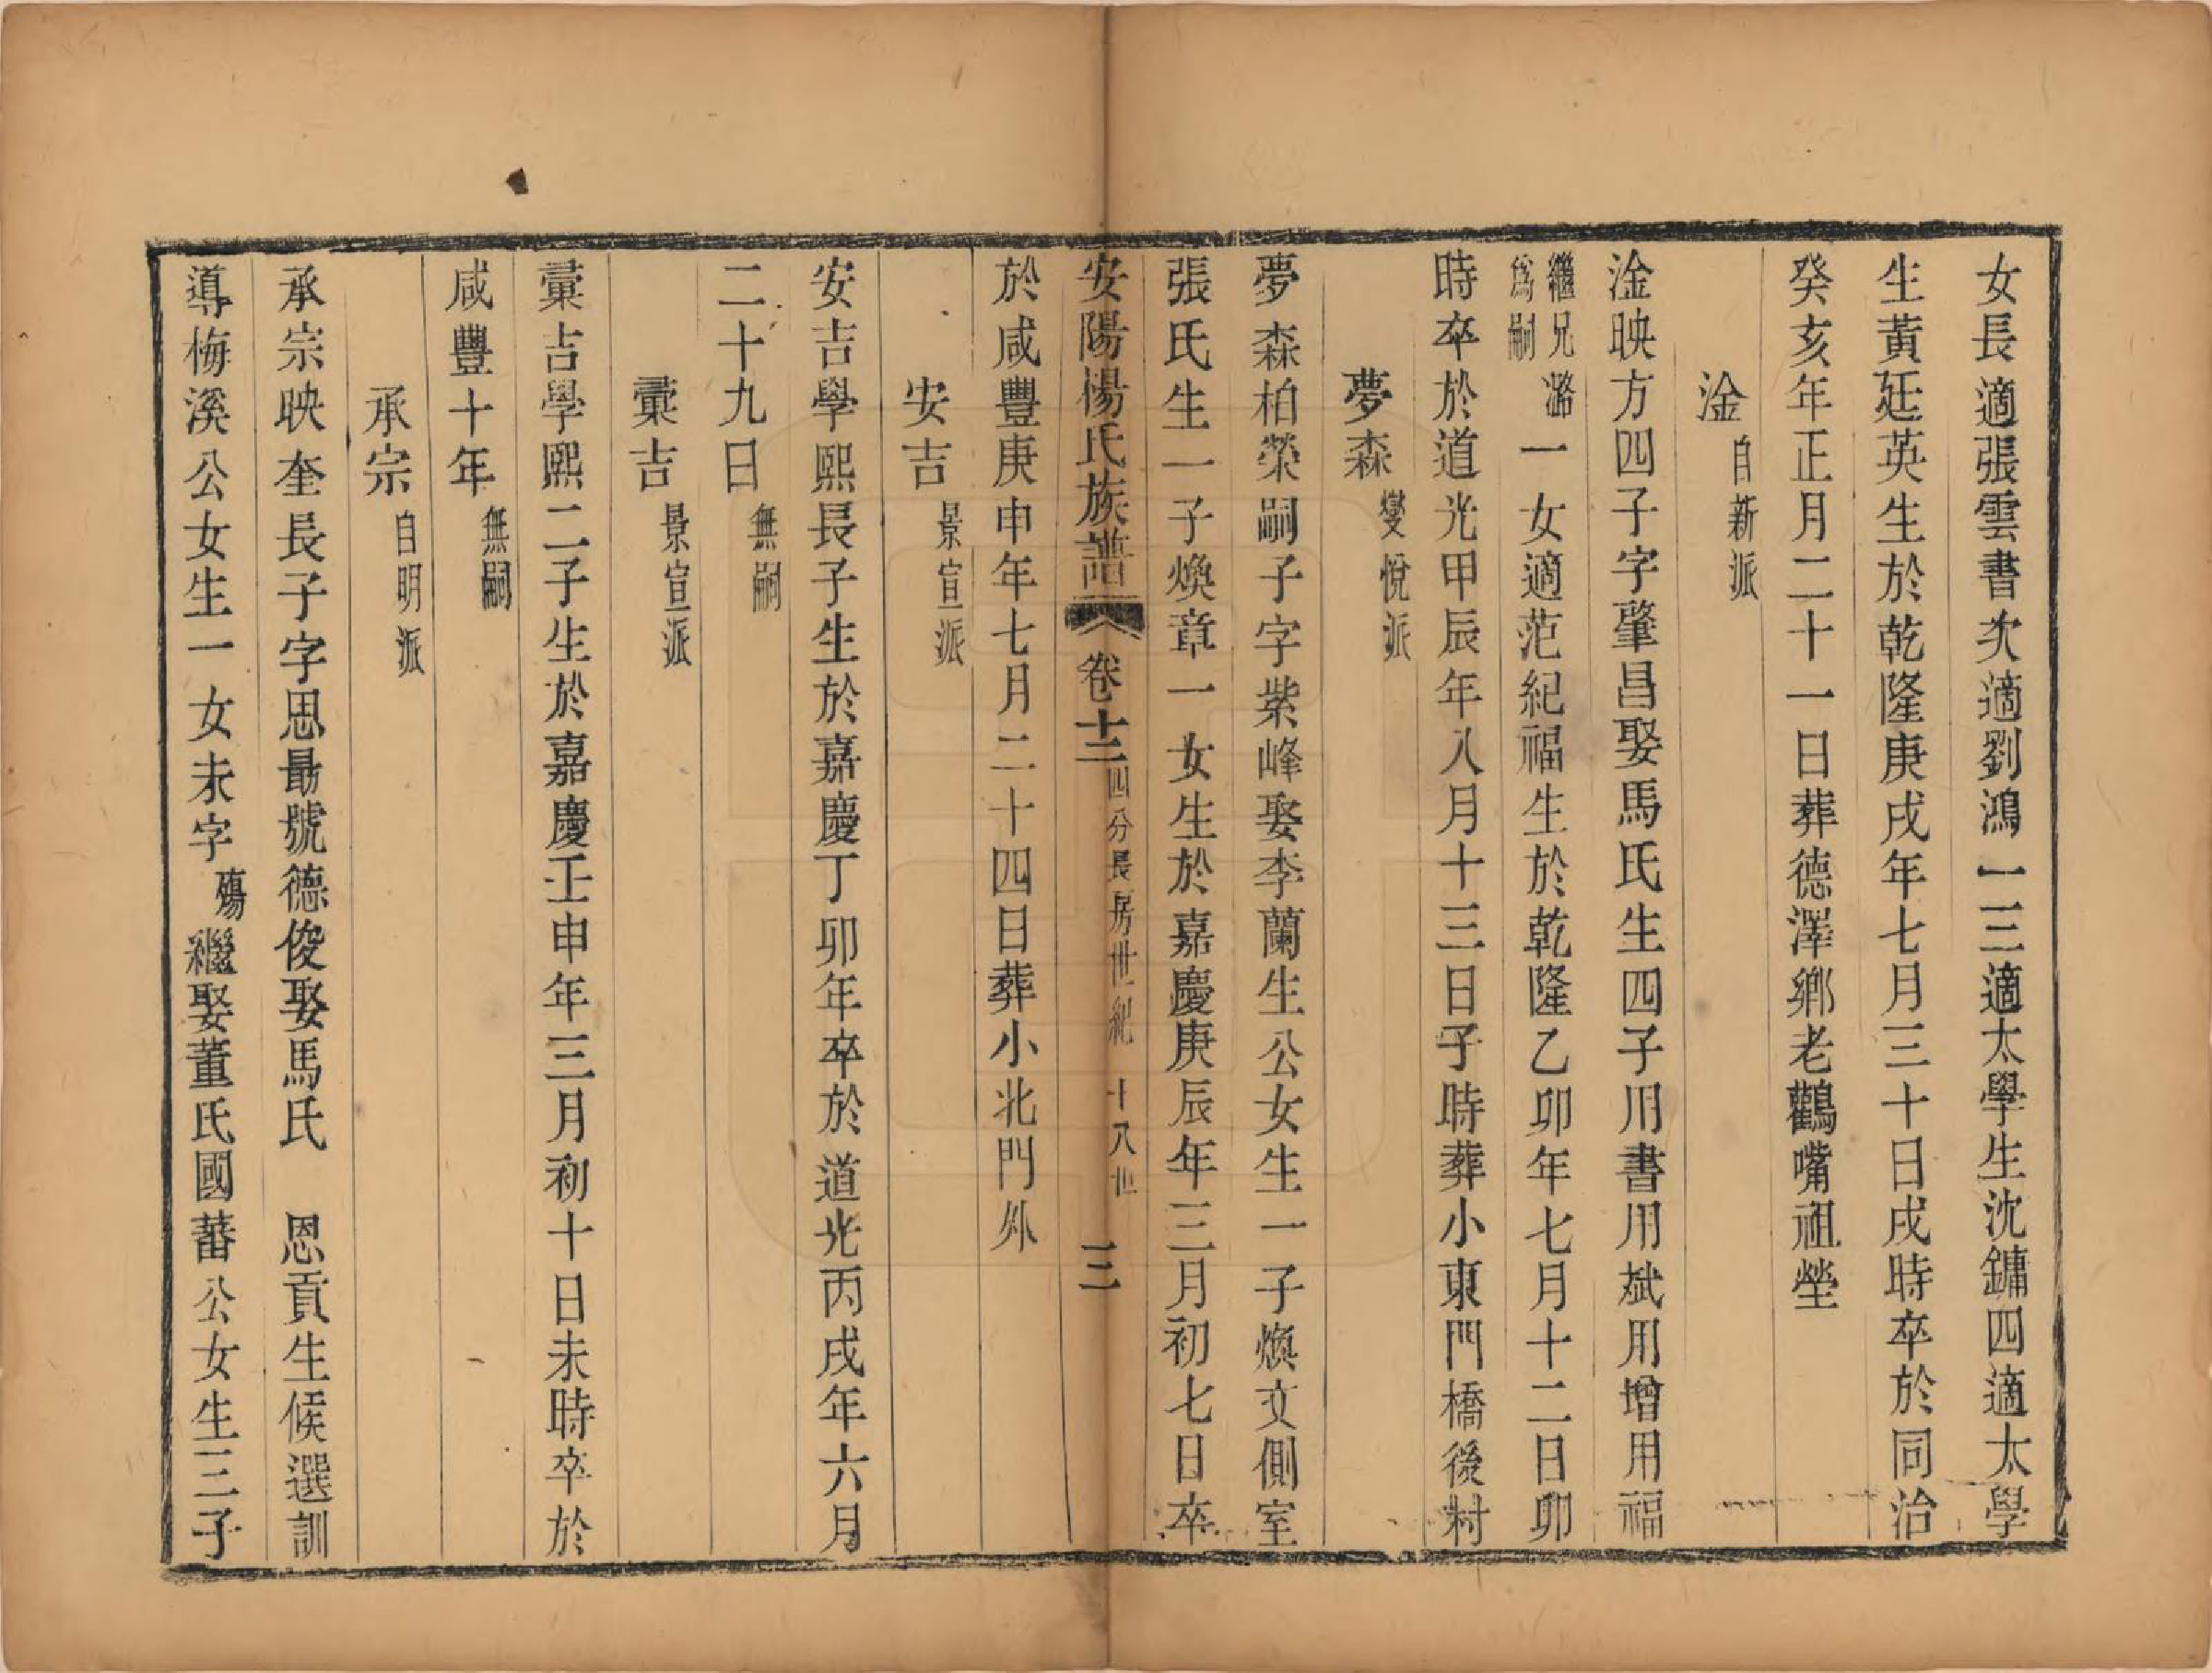 女長適張雲書次適劉鴻一三適太學生沈鏞四適太學
生黃廷英生於乾隆庚戌年七月三十日戌時卒於同治
癸亥年正月二十一日葬德澤鄉老鸛嘴祖塋
淦 自新派
淦映方四子字肇昌娶馬氏生四子用書用斌用增用福
繼兄潞爲嗣一女適范紀福生於乾隆乙卯年七月十二日卯
時卒於道光甲辰年八月十三日子時葬小東門橋後村
夢森 燮悅派
夢森柏榮嗣子字紫峰娶李蘭生公女生一子煥文側室
張氏生一子煥章一女生於嘉慶庚辰年三月初七日卒
安陽楊氏族譜 卷十二 四分長房世紀 十八世 三
於咸豐庚申年七月二十四日葬小北門外
安吉 景宣派
安吉學熙長子生於嘉慶丁卯年卒於道光丙戌年六月
二十九日 無嗣
彙吉 景宣派
彙吉學熙二子生於嘉慶壬申年三月初十日未時卒於
咸豐十年 無嗣
承宗 自明派
承宗映奎長子字思勗號德俊娶馬氏 恩貢生候選訓
導梅溪公女生一女未字殤繼娶董氏國蕃公女生三子